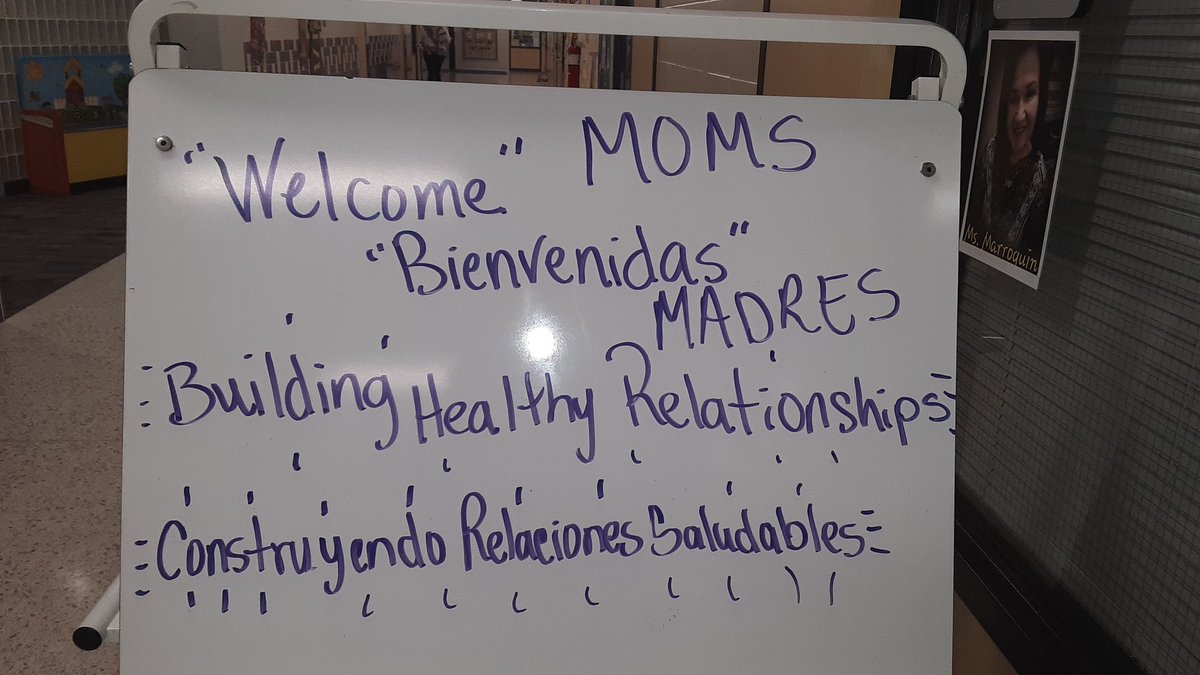 "Welcome" MOMS
"Bienvenidas"
MADRES
Building Healthy Relationships
Construyendo Relaciones Saludables
Ms. Marroquin